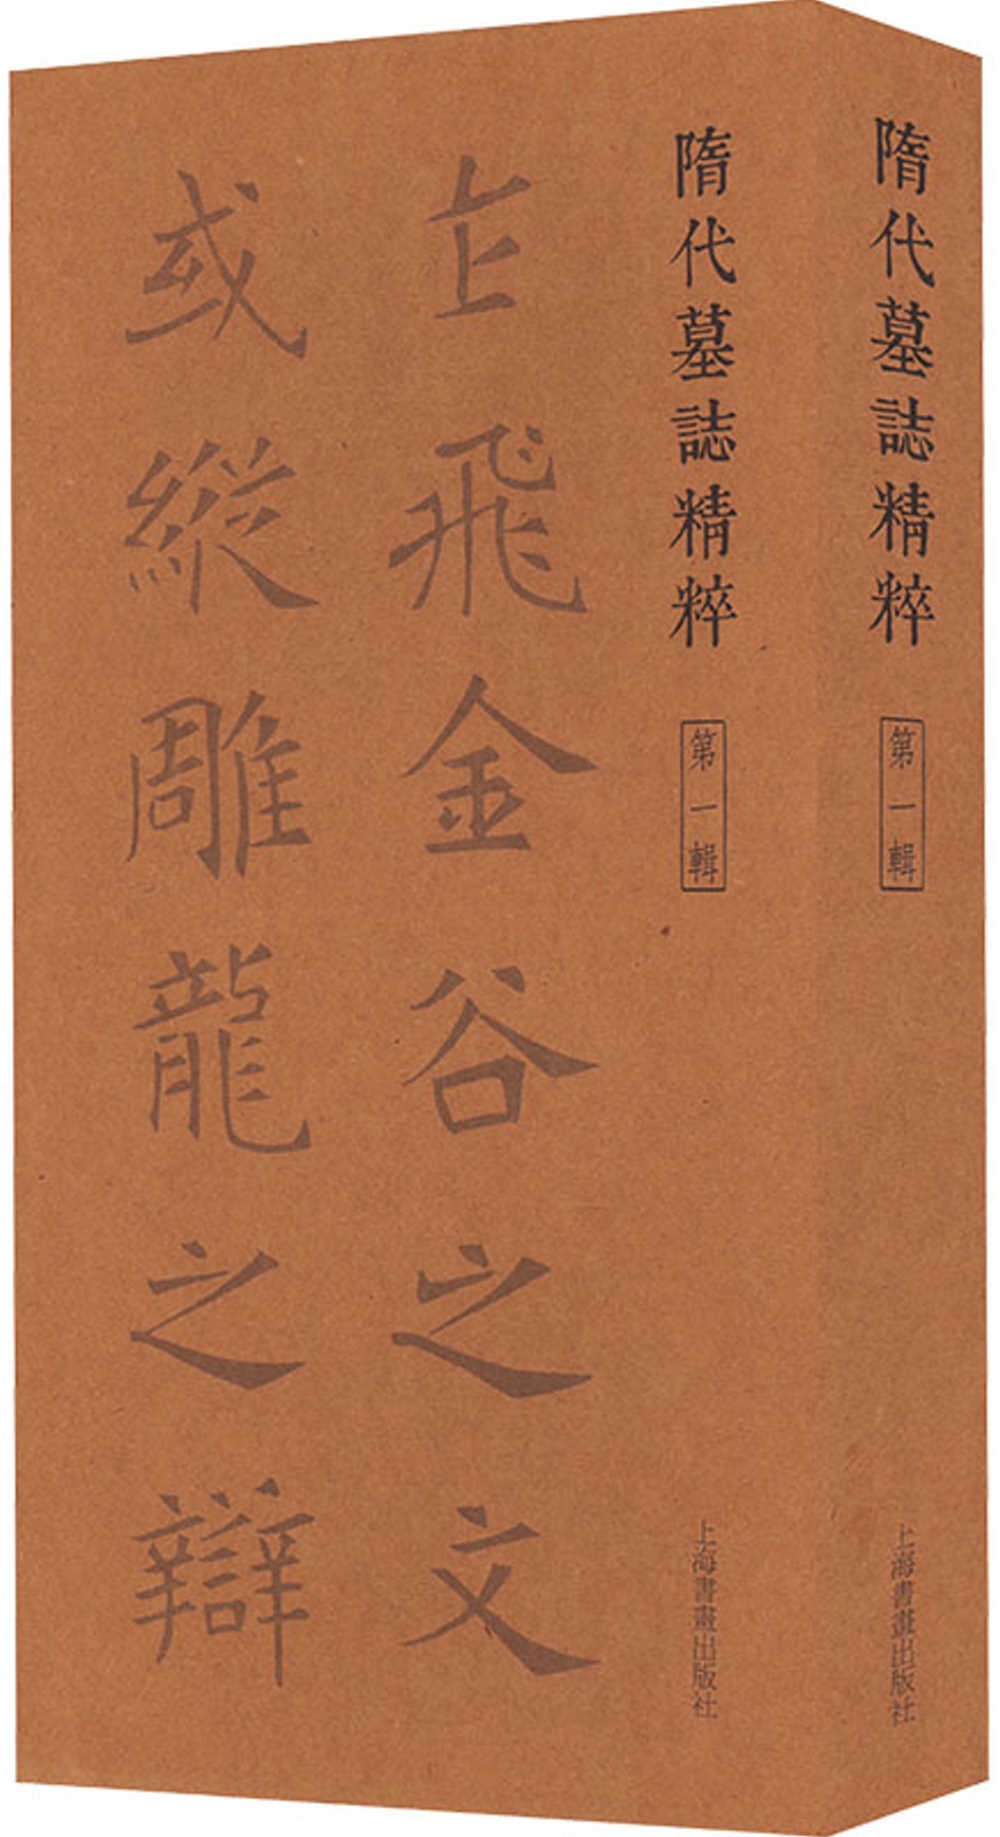 隋代墓誌精粹
第一輯
上海書畫出版社
隋代墓誌精粹
第一輯
上海書畫出版社
乍飛金谷之文
或縱雕龍之辯